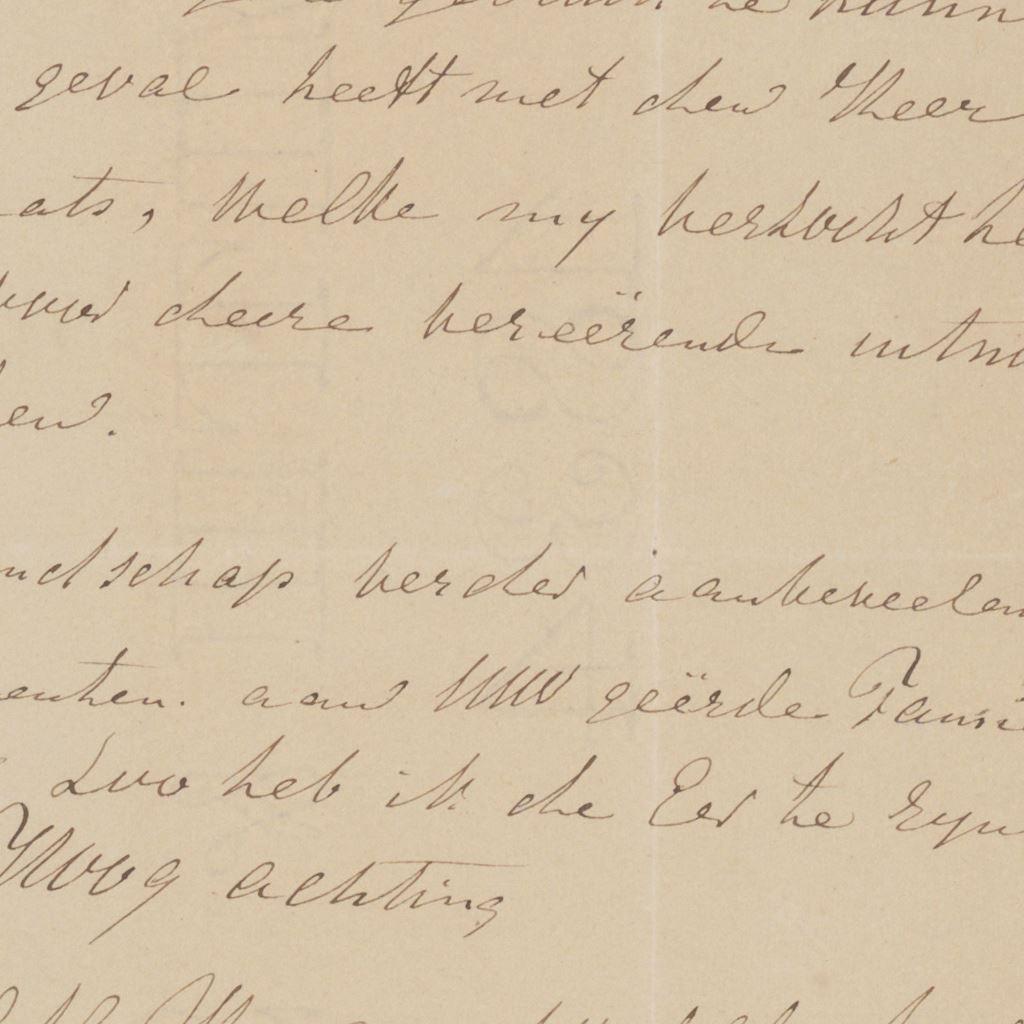 te kunn
geval heeft met den Heer
ats, welke my verkocht he
voor deere vereërende intro
en.
ndschap verder aanbeveelen
enten. aan UWE geërde Fami
Zoo heb ik de Eer te zyn
Hoog achting